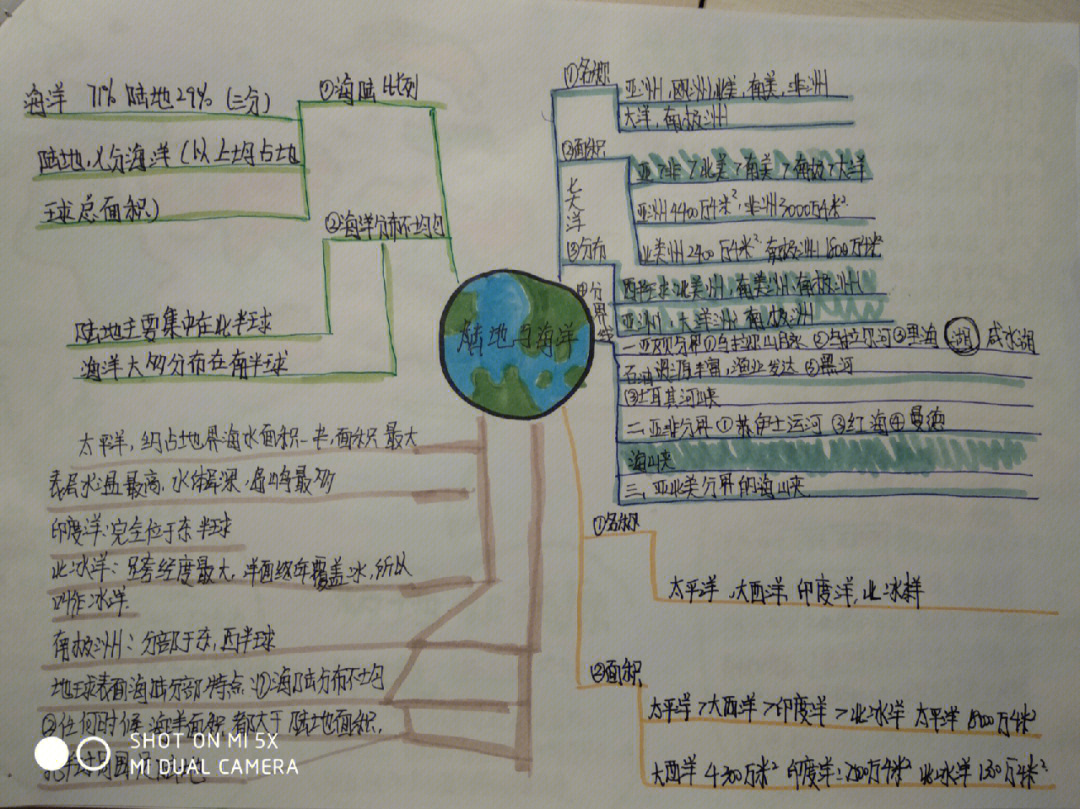 海洋 71% 陆地29% (三分)
陆地,七分海洋(以上均占地
球总面积)
①海陆比列
②海洋分布不均匀
陆地主要集中在北半球
海洋大多分布在南半球
陆地与海洋
①名称
亚洲,欧洲,北美,南美,非洲
大洋,南极洲
②面积
亚>非>北美>南美>南极>大洋
亚洲4400万千米² 非洲3000万千米²
北美州2400万千米² 南极洲1800万千米²
七大洋
③分布
西半球:北美州,南美州,南极州
亚洲,大洋洲,南极洲
④分界线
一亚欧分界①乌拉尔山脉 ②乌拉尔河③里海 湖 咸水湖
石油资源丰富,渔业发达 ⑤黑河
土耳其河峡
二.亚非分界①苏伊士运河 ③红海④曼德
海峡
三.亚北美分界的海峡
太平洋,约占地界海水面积一半,面积最大
表层水温最高,水体深,岛屿最多
印度洋:完全位于东半球
北冰洋:跨经度最大,洋面终年覆盖冰,所以
叫作冰洋.
南极洲:分部于东,西半球
地球表面海陆分部特点 ①海陆分布不均
②任何时候海洋面积都大于陆地面积,
①名称
太平洋,大西洋,印度洋,北冰洋
②面积
太平洋>大西洋>印度洋>北冰洋 太平洋
大西洋 印度洋: 北冰洋
SHOT ON MI 5X
MI DUAL CAMERA